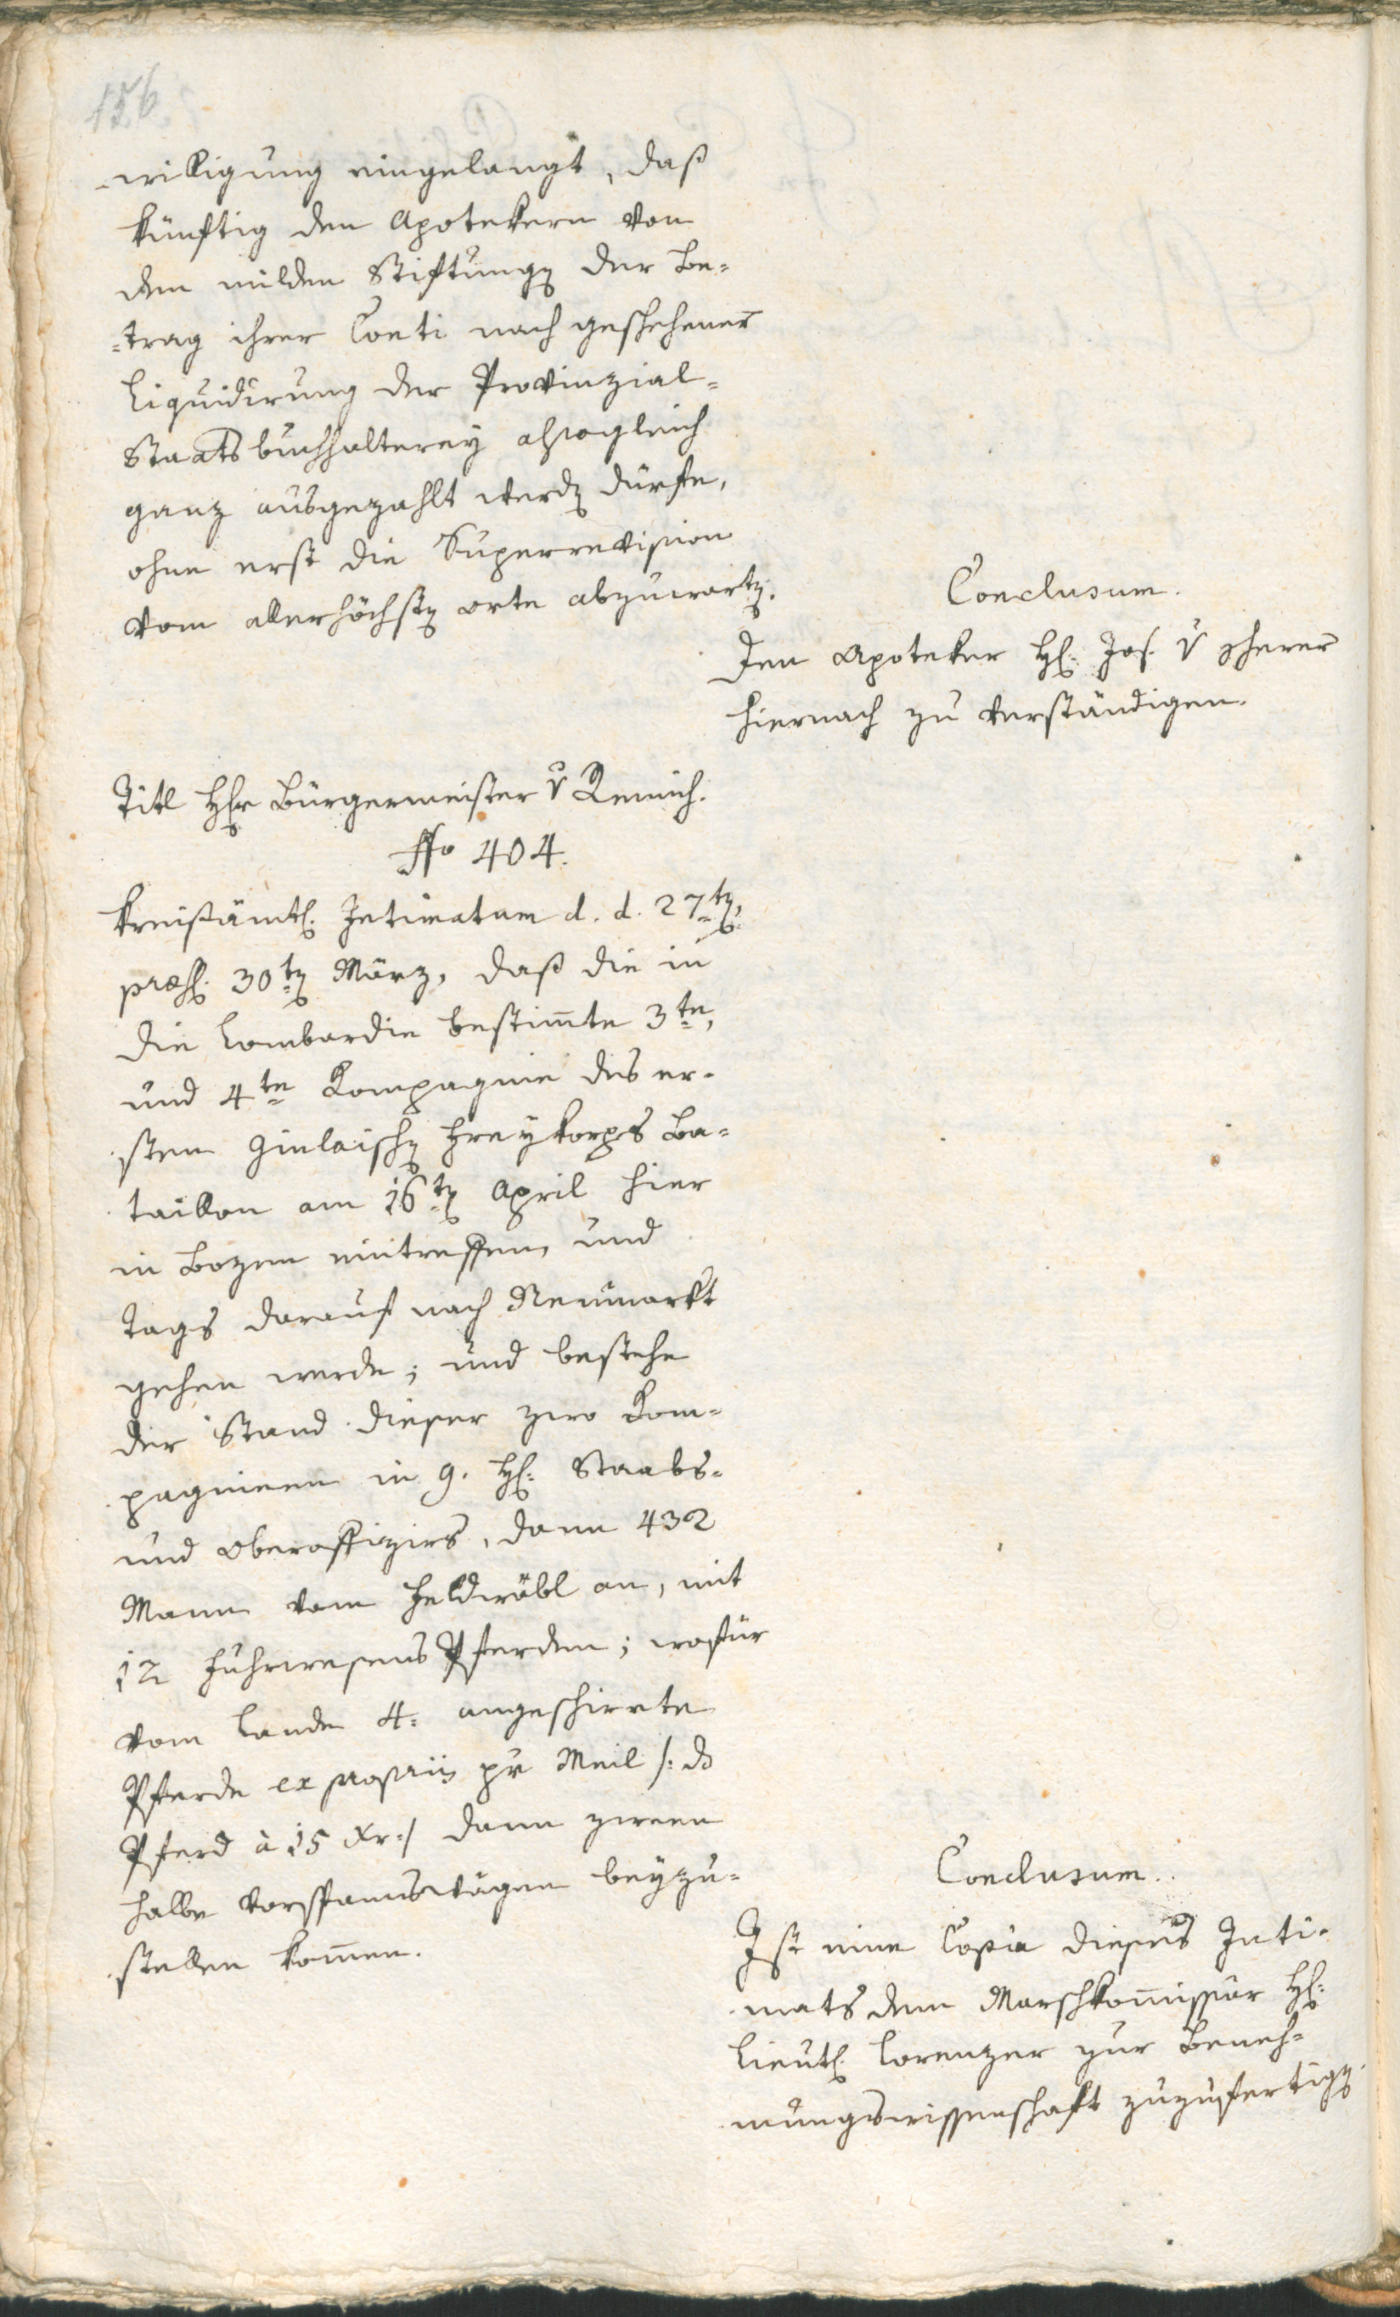 156.
-willigung eingelangt, daß
künftig den Apotekern von
den milden Stiftungen der Be-
-trag ihrer Conti nach geschehener
Liquidirung der Provinzial-
Staatsbuchhalterey alsogleich
ganz ausgezahlt werden dürfte,
ohne erst die Superrevision
vom allerhöchsten orte abzuwarten.
Conclusum.
Den Apoteker H: Jos. v
hiernach zu verständigen.
Titl Herr Bürgermeister v
No 404.
Kreisämtl. Intimatum d. d. 27ten,
præs. 30ten März, daß die in
die Lombardie bestimmte 3te,
und 4te Kompagnie des er-
sten Giulaischen Freykorps Ba-
taillon am 16ten April hier
in Bozen eintreffen, und
tags darauf nach Neumarkt
gehen werde; und bestehe
der Stand dieser zwo Kom-
pagnieen in 9. H: Staabs-
und Oberoffiziers, dann 432
Mann vom Feldwäbl an, mit
12 Fuhrwesens Pferden; wofür
vom Lande 4: angeschirrte
Pferde ex propriis pr Meil /: ds
Pferd à 15 Xr:/ dann zween
halbe Vorspannswägen beyzu-
stellen kom̅en.
Conclusum.
Ist eine Copia dieses Inti-
mats dem Marschkom̅issär H:
Lieut. Lorenzer zur Beneh-
mungswissenschaft zuzufertigen.